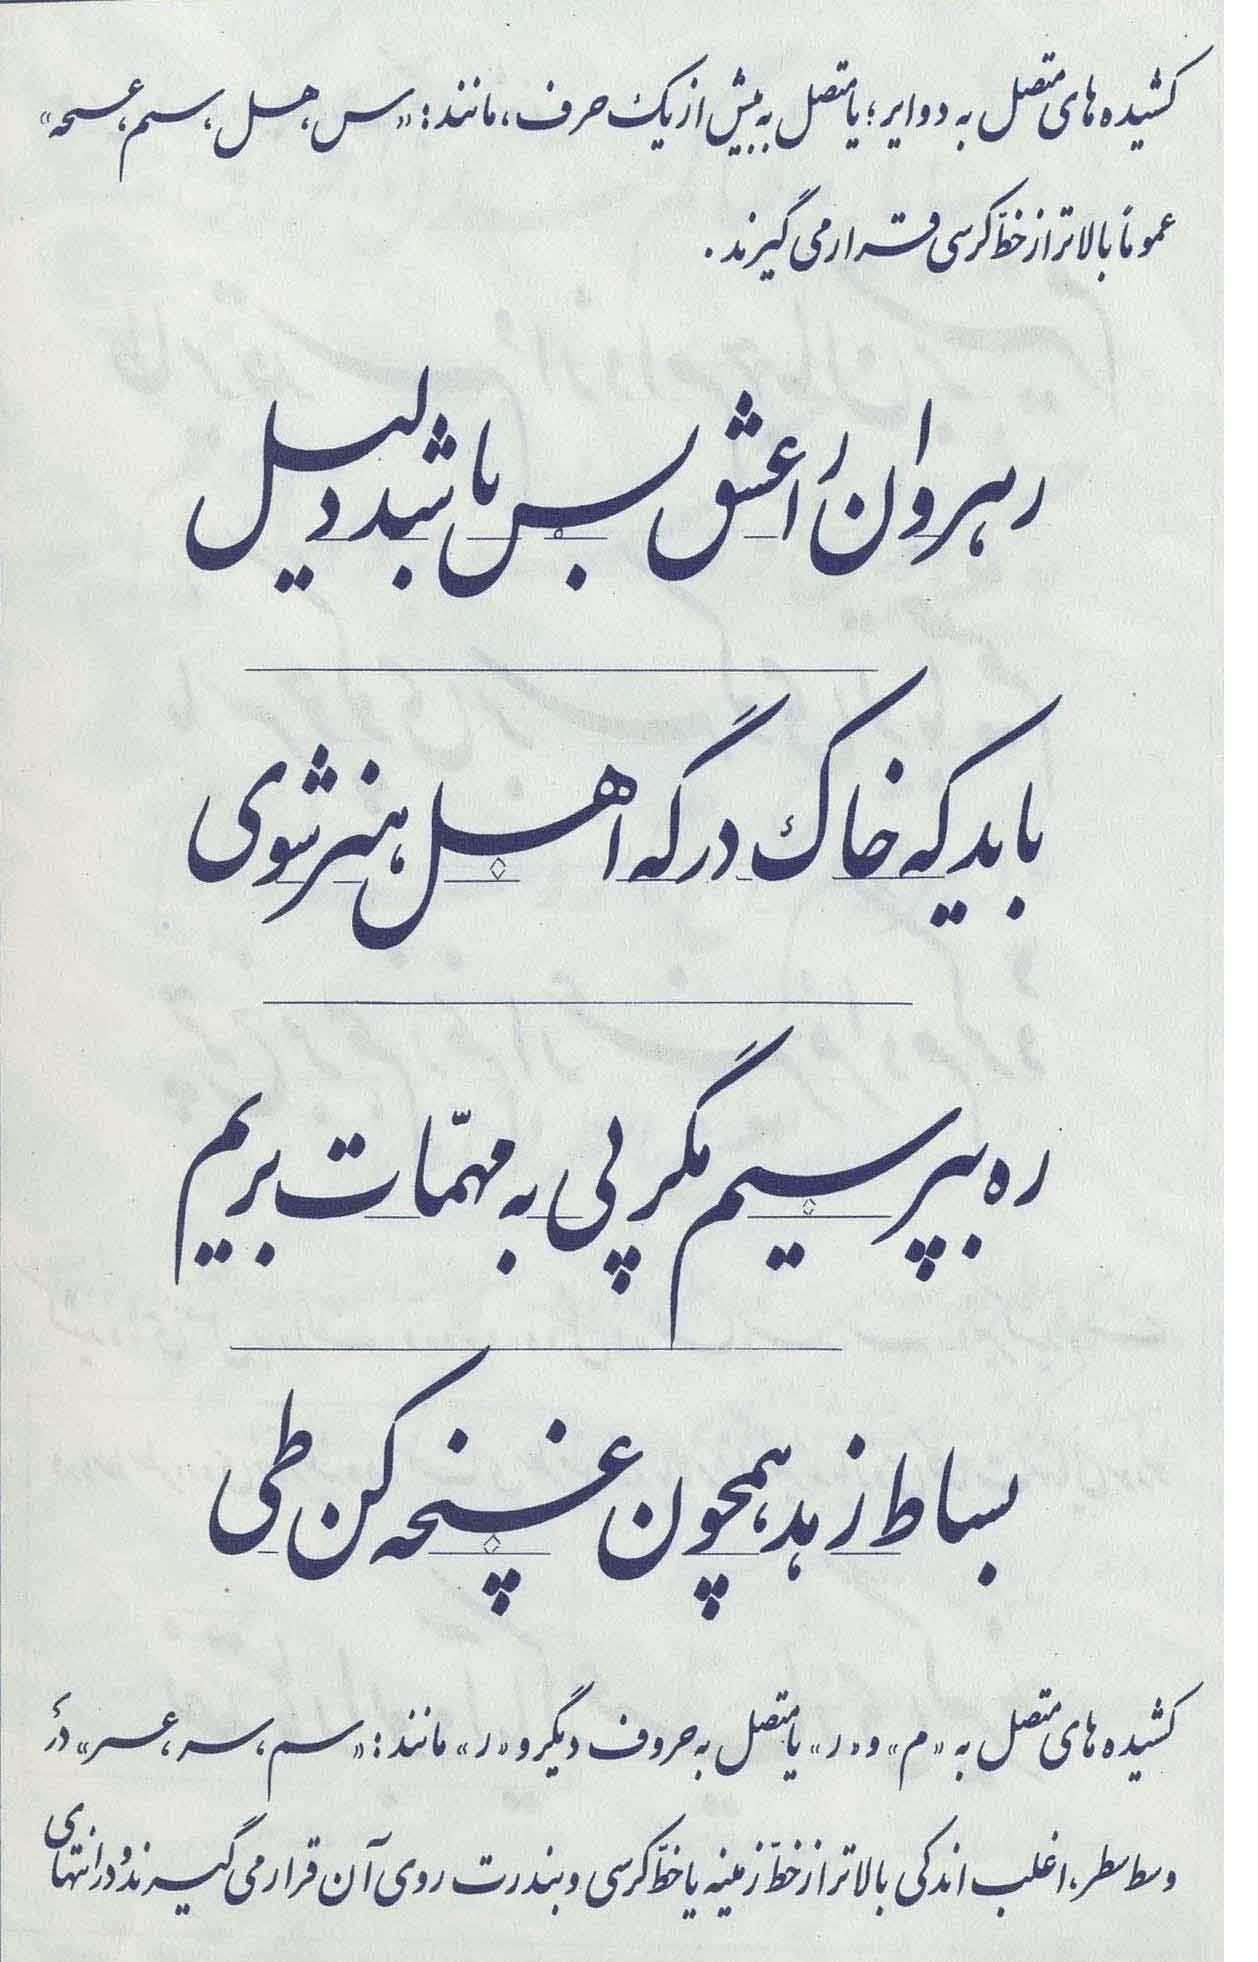 کشیده های متصل به دوایر؛ یا متصل به بیش از یک حرف، مانند: «س، هل، سم، عسحه»
عموماً بالاتر از خطّ کرسی قرار می گیرند.
رهروان را عشق بس باشد دلیل
باید که خاک درگه اهل هنر شوی
ره بپرسیم مگر پی به مهمّات بریم
بساط زهد همچون غنچه کن طی
کشیده های متصل به «م» و «ر» یا متصل به حروف دیگر و «ر» مانند: «سم، سر، عسر» در
وسط سطر، اغلب اندکی بالاتر از خطّ زمینه یا خطّ کرسی و بندرت روی آن قرار می گیرند و در انتهای